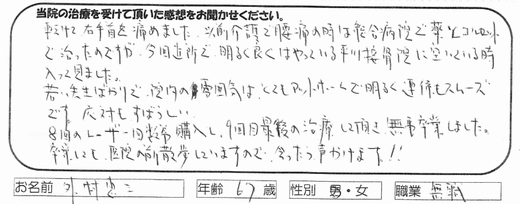 当院の治療を受けて頂いた感想をお聞かせください。
転けて右肩を痛めました。以前介護で腰痛の時は総合病院で薬とコルセット
で治ったのですが、今回近所で明るく良くはやっている平川接骨院に空いている時
入って見ました。
若い先生ばかりで、院内の雰囲気はとてもアットホームで明るく連係もスムーズ
です。応対もすばらしい。
8回のレーザー回数券購入し、9回目最後の治療して頂き無事卒業しました。
卒業しても医院の前散歩していますので、会ったら声かけます!!
お名前 村 二 年齢 67 歳 性別 男・女 職業 無職